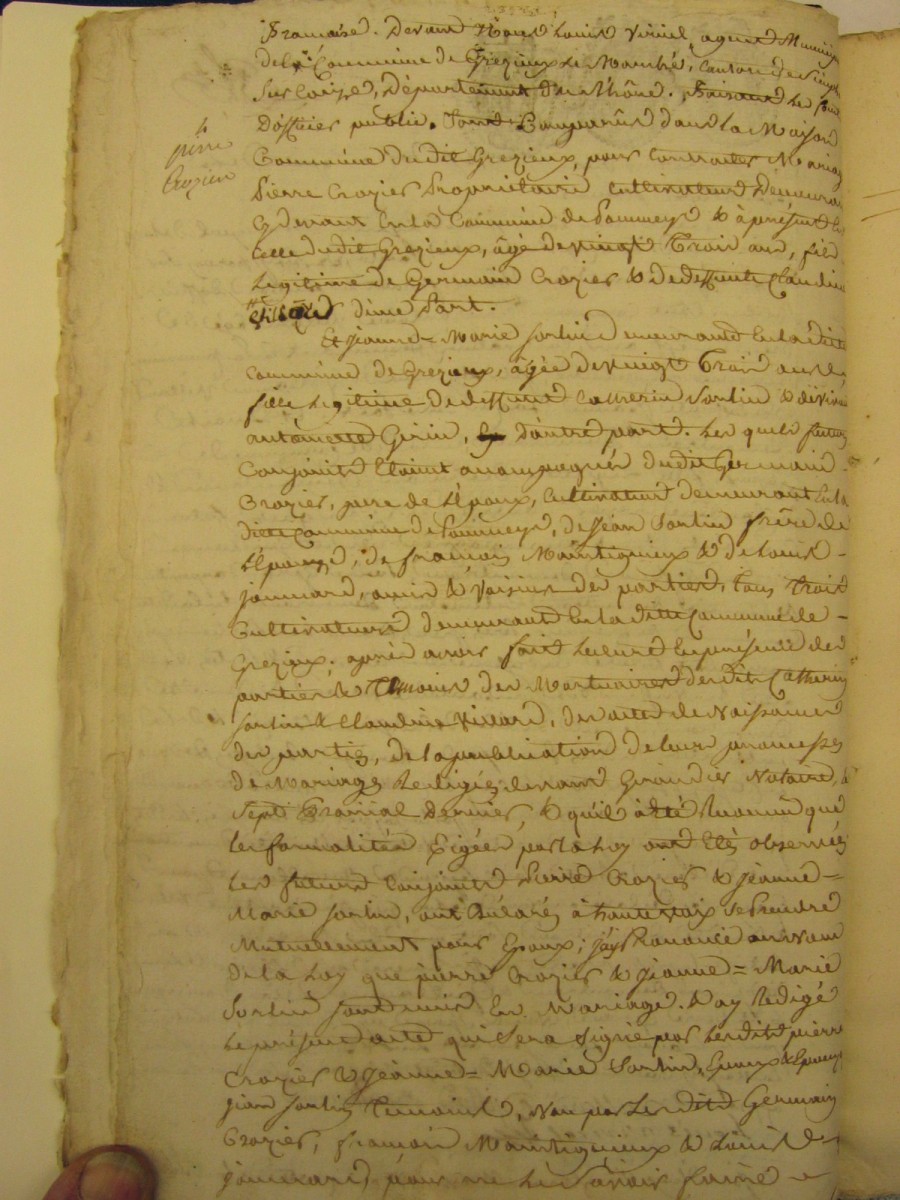 française. Devant Nous Louis Viriel, agent Munici
de la Commune de Grezieux Le Marché, Canton de
sur Coize, Département du Rhône. faisant les fon
Dofficier public. Sont Comparûs dans La Maison
Commune dudit Grezieux, pour Contracter Mariag
pierre Crozier
Pierre Crozier Propriétaire Cultivateur Demeurant
Cydevant En la Commune de Pommeys & àprésent En
Celle dudit Grezieux, âgé de vingt Trois ans, fils
Legitime de Germain Crozier & de deffunte Claudine
Villard d'une Part.
Et Jeanne = Marie Sorlin demeurant En la dite
Commune de Grezieux, âgée de vingt Trois ans
fille Legitime de deffunt Catherin Sorlin & de vivante
antoinette Girin, d'autre part. Les quels futurs
Conjoints Etoient accompagnés dudit Germain
Crozier, pere de L'Epoux, Cultivateur demeurant En la
dite Commune de Pommeys, de Jean Sorlin frère de
L'Epouse, de françois Montigneux & de Louis
Joannard, amis & Voisins des parties, tous Trois
Cultivateurs demeurant En la ditte Commune de
Grezieux; après avoir fait Lecture En présence des
parties & Temoins, des Mortuaires desdits Catherin
Sorlin & Claudine Villard, des actes de Naissances
des parties, de la publication de leurs promesses
de Mariage Redigées devant Giraudier Notaire, le
Sept Prairial Dernier, & qu'il à été Reconnu que
les formalités Exigées par la Loy ont Etés observées
Les futurs Conjoints Pierre Crozier & Jeanne =
Marie Sorlin, ont déclarés à haute voix se Prendre
Mutuellement pour Epoux; j'ay Prononcé au nom
de la Loy que pierre Crozier & Jeanne = Marie
Sorlin sont unis En Mariage. & ay Redigé
Le présent acte qui sera Signé par Lesdits pierre
Crozier & Jeanne = Marie Sorlin, Epoux & Epouse
jean Sorlin Temoins, Non par Lesdits Germain
Crozier, françois Montigneux & Louis
Joannard, pour ne le Savoir faire